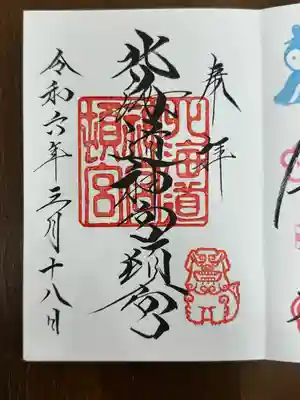 奉拝
北海道神宮頓宮
北海道神宮頓宮
令和六年三月十八日